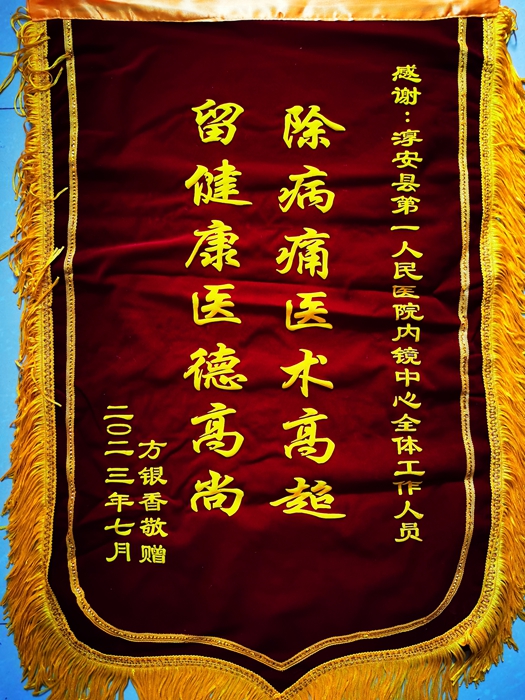 感谢：淳安县第一人民医院内镜中心全体工作人员
除病痛医术高超
留健康医德高尚
方银香敬赠
二〇二三年七月